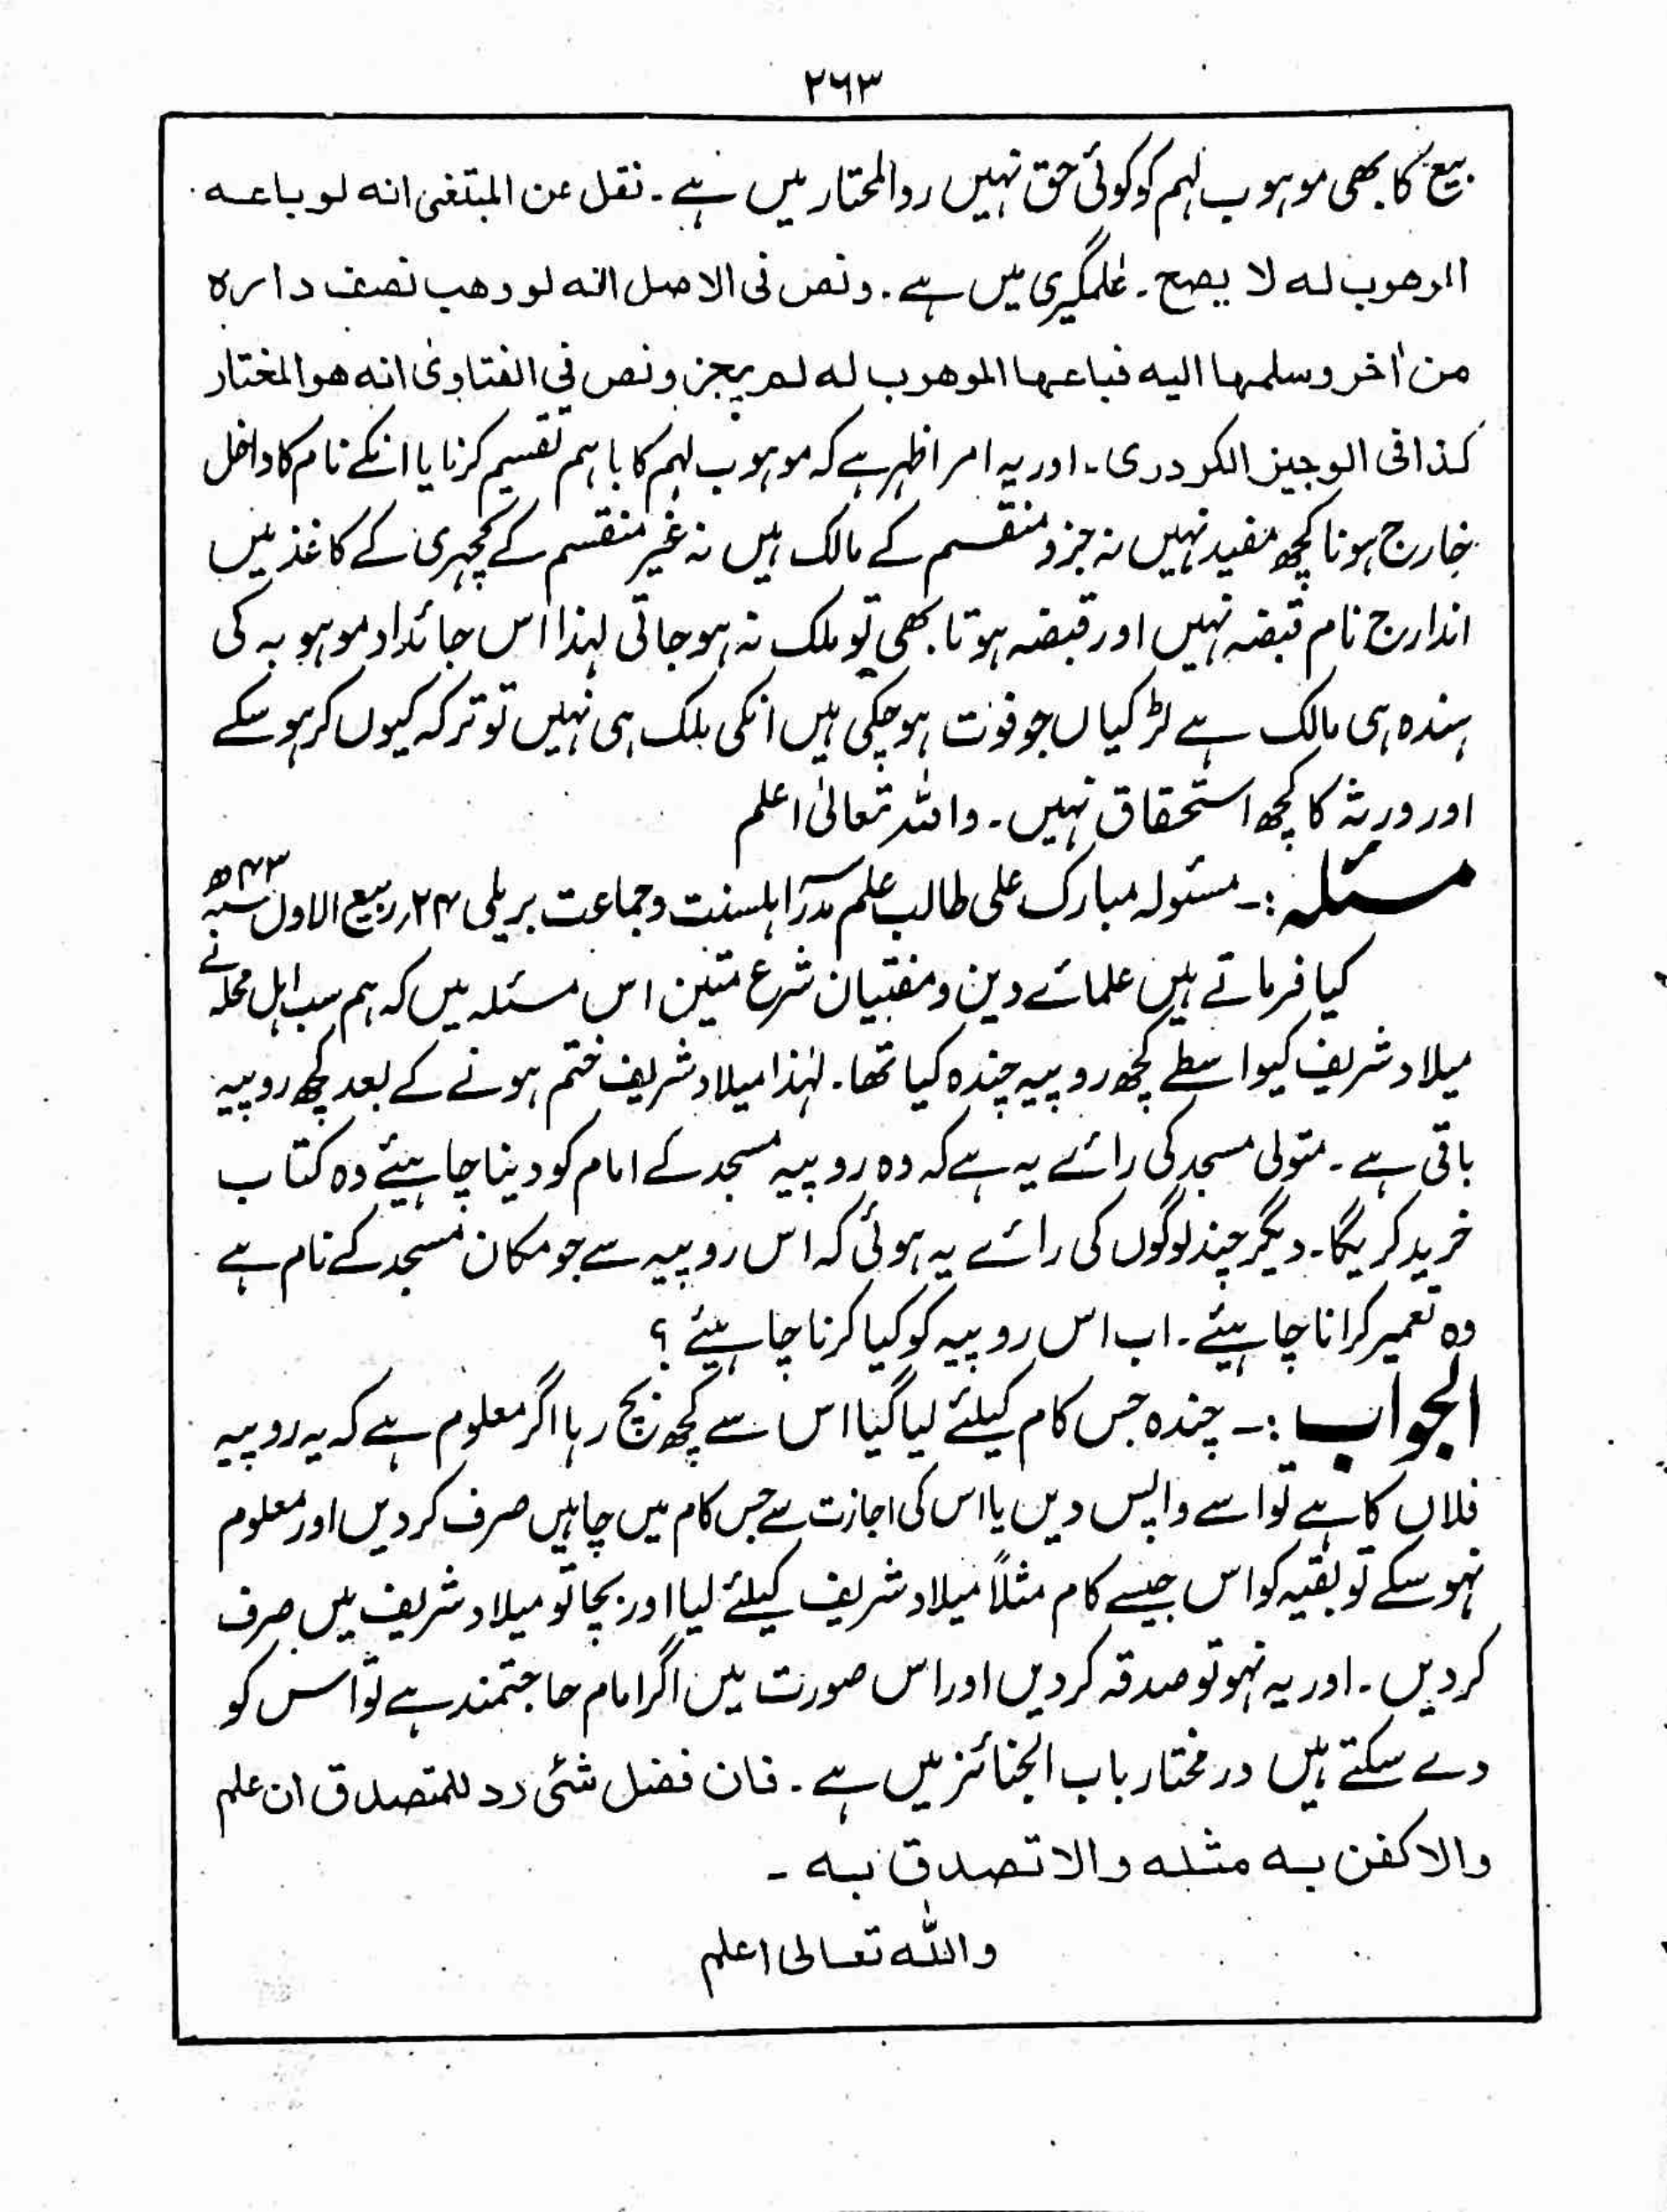 ۲۶۳
بیع کا بھی موہوب لہم کو کوئی حق نہیں ردالمحتار میں ہے۔ نقل عن المبتغی انه لو باعه
الموهوب له لا یصح۔ عٰلمگیری میں ہے۔ ونص فی الاصل انه لو وهب نصف داره
من اٰخر وسلمها الیه فباعها الموهوب له لم یجز ونص فی الفتاویٰ انه هو المختار
کذا فی الوجیز الکردری۔ اور یہ امر اظہر ہے کہ موہوب لہم کا باہم تقسیم کرنا یا انکے نام کا داخل
خارج ہونا کچھ مفید نہیں نہ جزو منقسم کے مالک ہیں نہ غیر منقسم کے کچہری کے کاغذ میں
اندارج نام قبضہ نہیں اور قبضہ ہوتا بھی تو ملک نہ ہو جاتی لہذا اس جائداد موہوبہ کی
ہندہ ہی مالک ہے لڑکیاں جو فوت ہو چکی ہیں انکی ملک ہی نہیں تو ترکہ کیوں کر ہو سکے
اور ورثہ کا کچھ استحقاق نہیں۔ واللہ تعالیٰ اعلم
مسئلہ :۔ مسئولہ مبارک علی طالب علم مدرسہ اہلسنت وجماعت بریلی ۲۴ ربیع الاول سنہ ۴۳ھ
کیا فرماتے ہیں علمائے دین ومفتیان شرع متین اس مسئلہ میں کہ ہم سب اہل محلہ نے
میلاد شریف کیواسطے کچھ روپیہ چندہ کیا تھا۔ لہٰذا میلاد شریف ختم ہونے کے بعد کچھ روپیہ
باقی ہے۔ متولی مسجد کی رائے یہ ہے کہ وہ روپیہ مسجد کے امام کو دینا چاہیئے وہ کتاب
خرید کریگا۔ دیگر چند لوگوں کی رائے یہ ہوئی کہ اس روپیہ سے جو مکان مسجد کے نام ہے
وہ تعمیر کرانا چاہیئے۔ اب اس روپیہ کو کیا کرنا چاہیئے ؟
الجواب :۔ چندہ جس کام کیلئے لیا گیا اس سے کچھ بچ رہا اگر معلوم ہے کہ یہ روپیہ
فلاں کا ہے تو اسے واپس دیں یا اس کی اجازت سے جس کام میں چاہیں صرف کر دیں اور معلوم
نہو سکے تو بقیہ کو اس جیسے کام مثلاً میلاد شریف کیلئے لیا اور بچا تو میلاد شریف میں صرف
کر دیں۔ اور یہ نہو تو صدقہ کر دیں اور اس صورت میں اگر امام حاجتمند ہے تو اس کو
دے سکتے ہیں درمختار باب الجنائز میں ہے۔ فان فضل شئی رد للمتصدق ان علم
والا کفن به مثله والا تصدق به ۔
والله تعالی اعلم